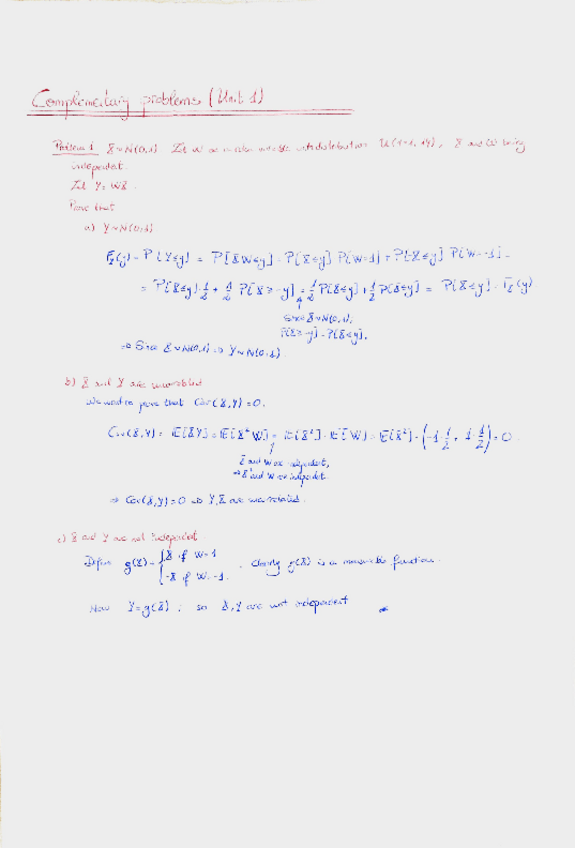 Complementary problems (Unit 1)
Problem 1 X~N(0,1) Let W be a random variable with distribution U({-1, 1}), X and W being
independent.
Let Y= WX.
Prove that
a) Y~N(0,1)
= P[X≤y] · 1/2 + 1/2 P[X ≥ -y] = 1/2 P[X≤y] + 1/2 P[X≤y] = P[X≤y] = F_X(y)
Since X~N(0,1),
P[X≥-y] = P[X≤y].
⇒ Since X~N(0,1) ⇒ Y~N(0,1).
b) X and Y are uncorrelated
We want to prove that Cov(X,Y)=0.
Cov(X,Y) = E[XY] = E[X² W] = E[X²] · E[W] = E[X²] · (-1·1/2 + 1·1/2) = 0.
X and W are independent,
⇒ X² and W are independent.
⇒ Cov(X,Y)=0 ⇒ Y,X are uncorrelated.
c) X and Y are not independent
Define g(X) = { X if W=1
-X if W=-1. Clearly g(X) is a measurable function.
Now Y=g(X), so X,Y are not independent